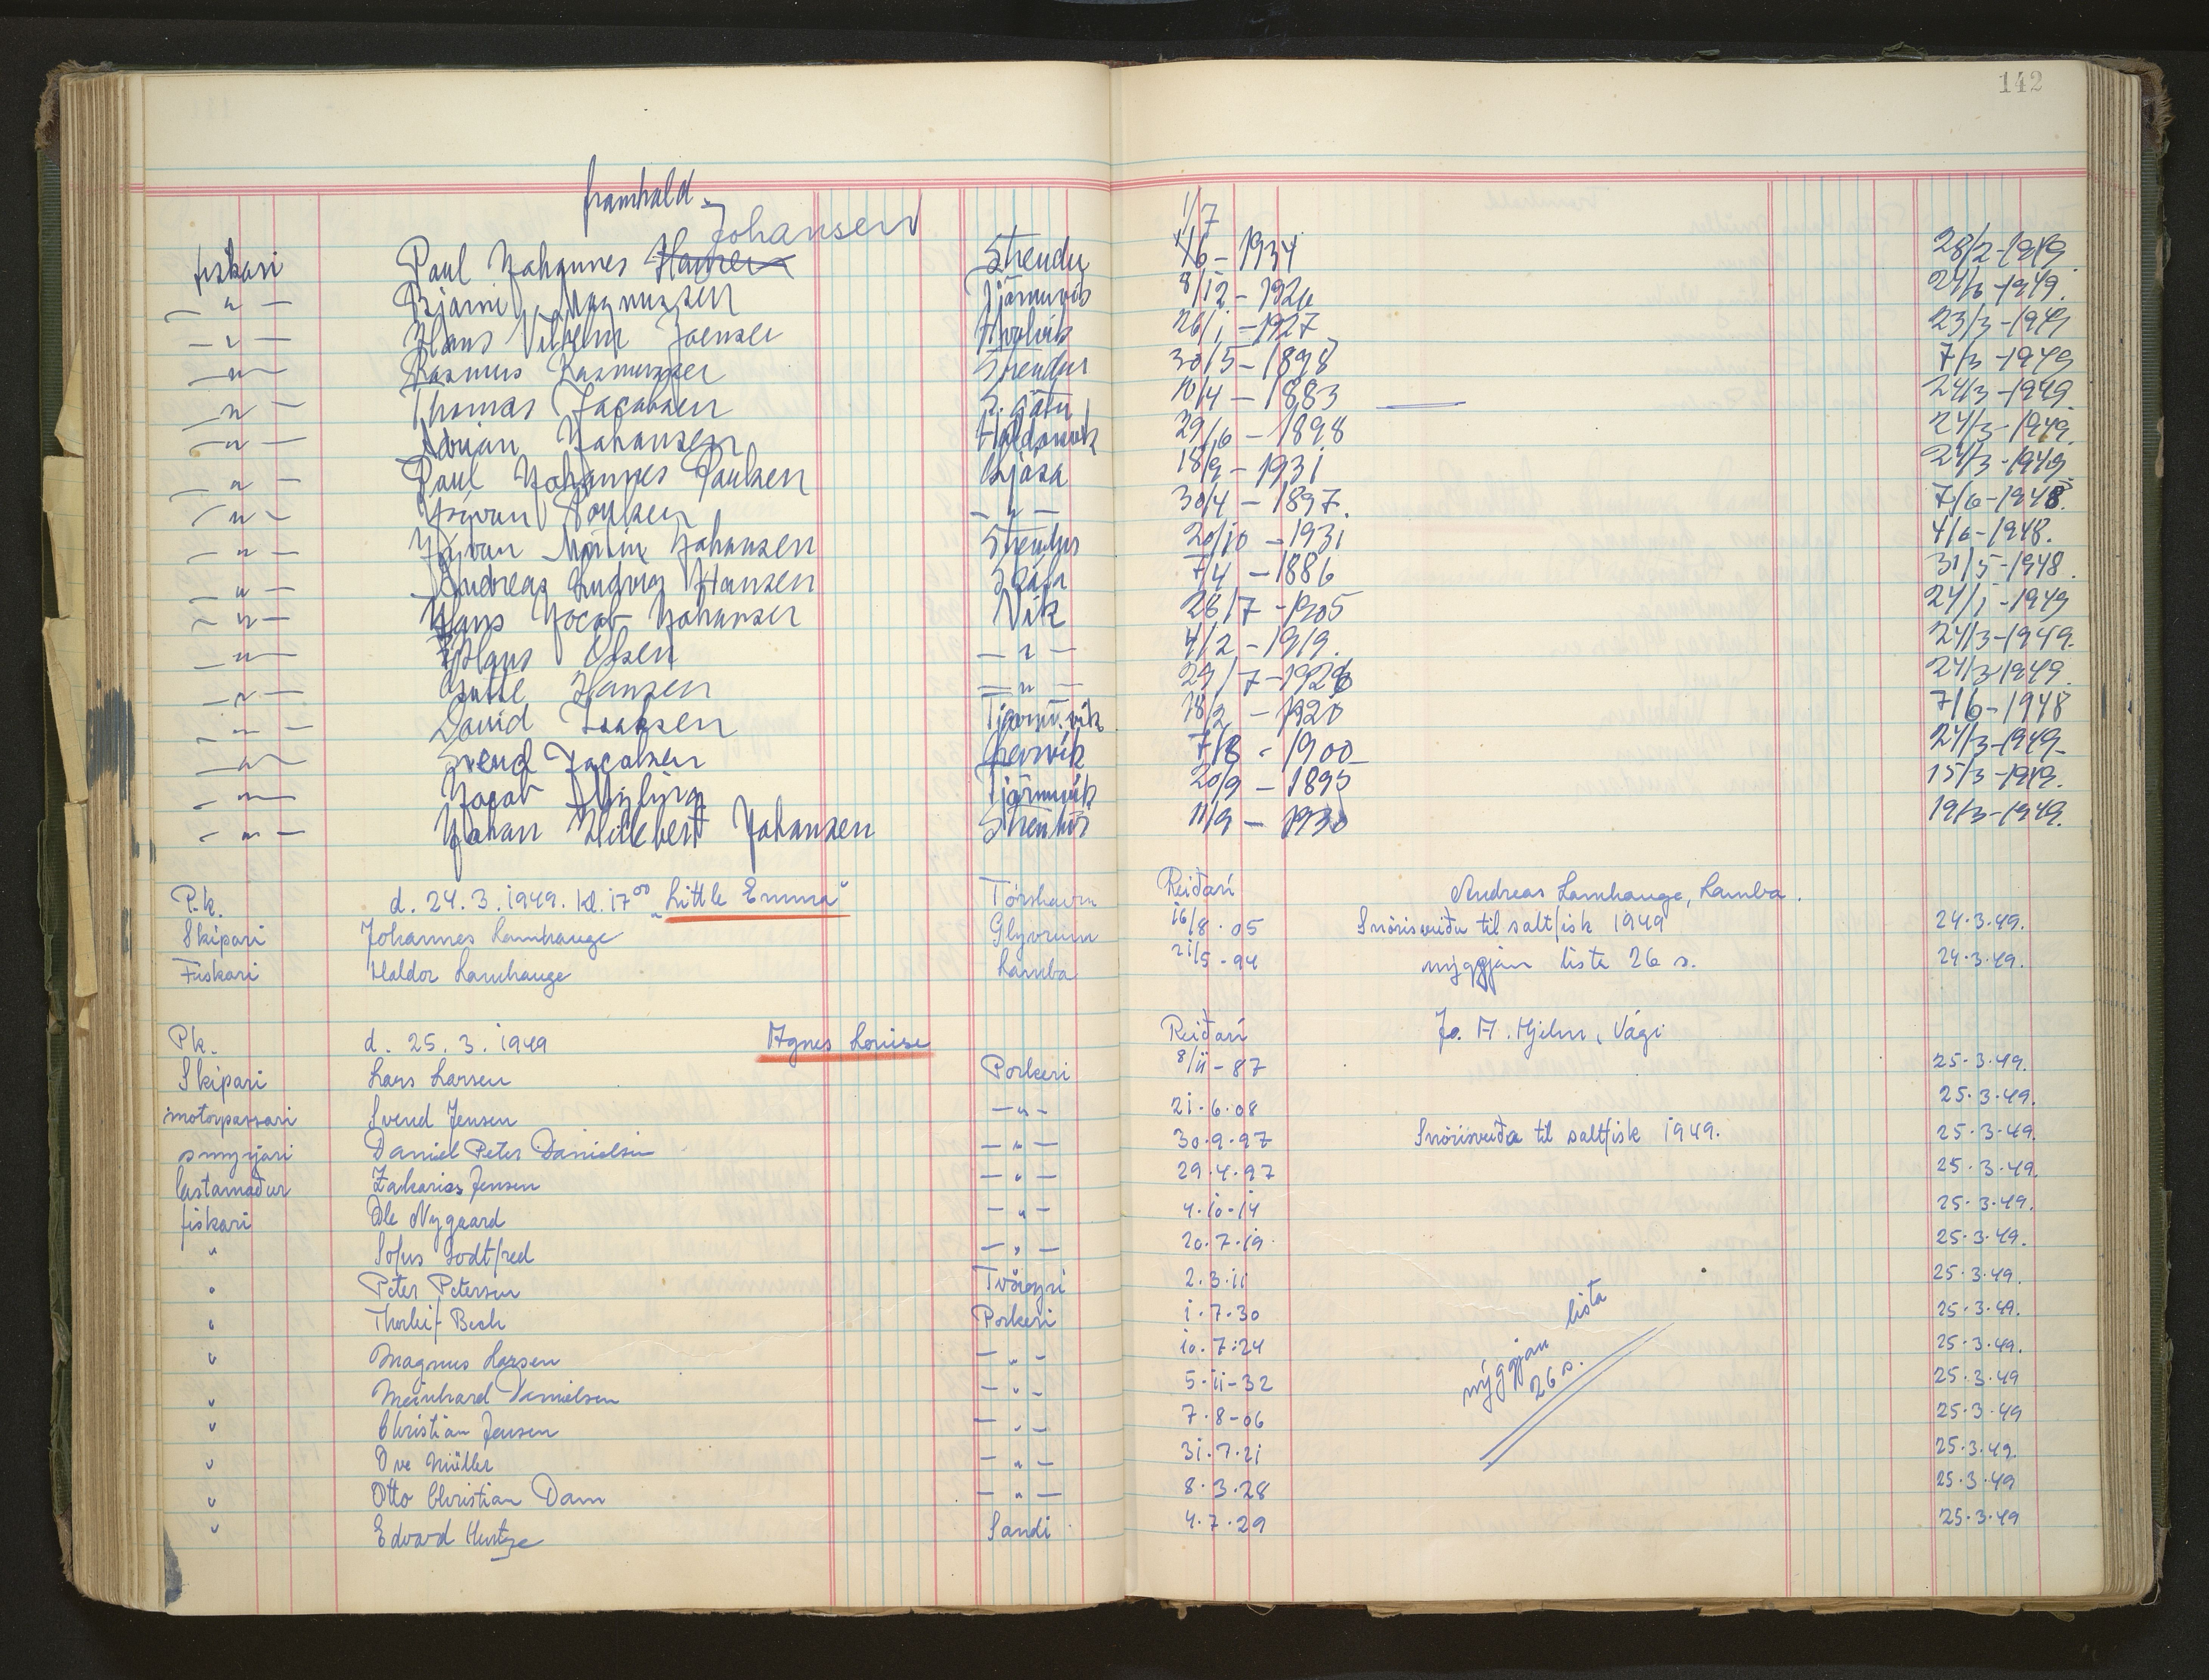 142
framhald.
Johansen
1/7
fiskari Paul Johannes Hansen Strendur 1/6 - 1934 28/2-1949.
— " — Bjarni Magnussen Tjørnuvik 8/12 - 1926 24/3-1949.
— " — Hans Vilhelm Joensen Hvalvik 26/1 - 1927 23/3-1949
— " — Rasmus Rasmussen Strendur 30/5 - 1898 7/3-1949
— " — Thomas Jacobsen S. gøtu 10/4 - 1883 24/3-1949
— " — Adrian Johansen Haldarsvik 29/6 - 1898 24/3-1949.
— " — Paul Johannes Paulsen Gjøsa 18/9 - 1931 24/3-1949
— " — Poulsen — " — 30/4 - 1897. 7/6-1948.
— " — Martin Johansen Strendur 20/10 - 1931 4/6-1948.
— " — Andreas Ludvig Hansen 7/4 - 1886 31/5-1948.
— " — Hans Jacob Johansen Vik 28/7 - 1905 24/1-1949
— " — Hans Olsen — " — 4/2 - 1919. 24/3-1949.
— " — Hansen — " — 29/7-1926 24/3-1949.
— " — David Isaksen Tjørnuvik 18/2 - 1920 7/6-1948
— " — Svend Jacobsen Leirvik 7/8 - 1900 24/3-1949
— " — Jacob Tjørnuvik 20/9 - 1895 15/3-1949.
— " — Johan Hilbert Johansen Strendur 11/9 - 1930 19/3-1949.
P.k. d. 24.3.1949. Kl. 17⁰⁰ „Little Emma" Tórshavn Reiðari Andreas Lamhauge, Lamba.
Skipari Johannes Lamhauge Glyvrum 16/8.05 Snørisveiðu til saltfisk 1949 24.3.49.
Fiskari Haldor Lamhauge Lamba 21/5-94 nýggjan lista 26 s. 24.3.49.
Pk. d. 25.3.1949 Agnes Louise Reiðari Jo. A. Hjelm, Vági
Skipari Lars Larsen Porkeri 8/11-87 25.3.49.
motorpassari Svend Jensen — " — 21.6.08 25.3.49.
smyrjari Daniel Peter Danielsen — " — 30.9.97 Snørisveiða til saltfisk 1949. 25.3.49.
lastamaður Zakarias Jensen — " — 29.4.97 25.3.49.
fiskari Ole Nygaard — " — 4.10-14 25.3.49.
" Sofus Godtfred — " — 20.7.19. 25.3.49.
" Peter Petersen Tvøroyri 2.3.11 25.3.49.
" Thorleif Bech Porkeri 1.7.30 25.3.49.
" Magnus Larsen — " — 10.7.24 25.3.49.
" Meinhard Danielsen — " — 5-11-32 nýggjan lista 26 s. 25.3.49
" Christian Jensen — " — 7.8-06 25.3.49
" Ove Müller — " — 31.7.21 25.3.49.
" Otto Christian Dam — " — 8.3.28 25.3.49
" Edvard Hentze Sandi 4.7.29 25.3.49